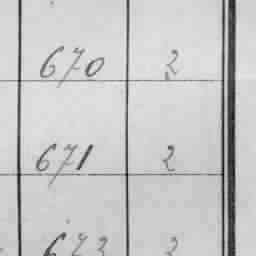 670 2
671 2